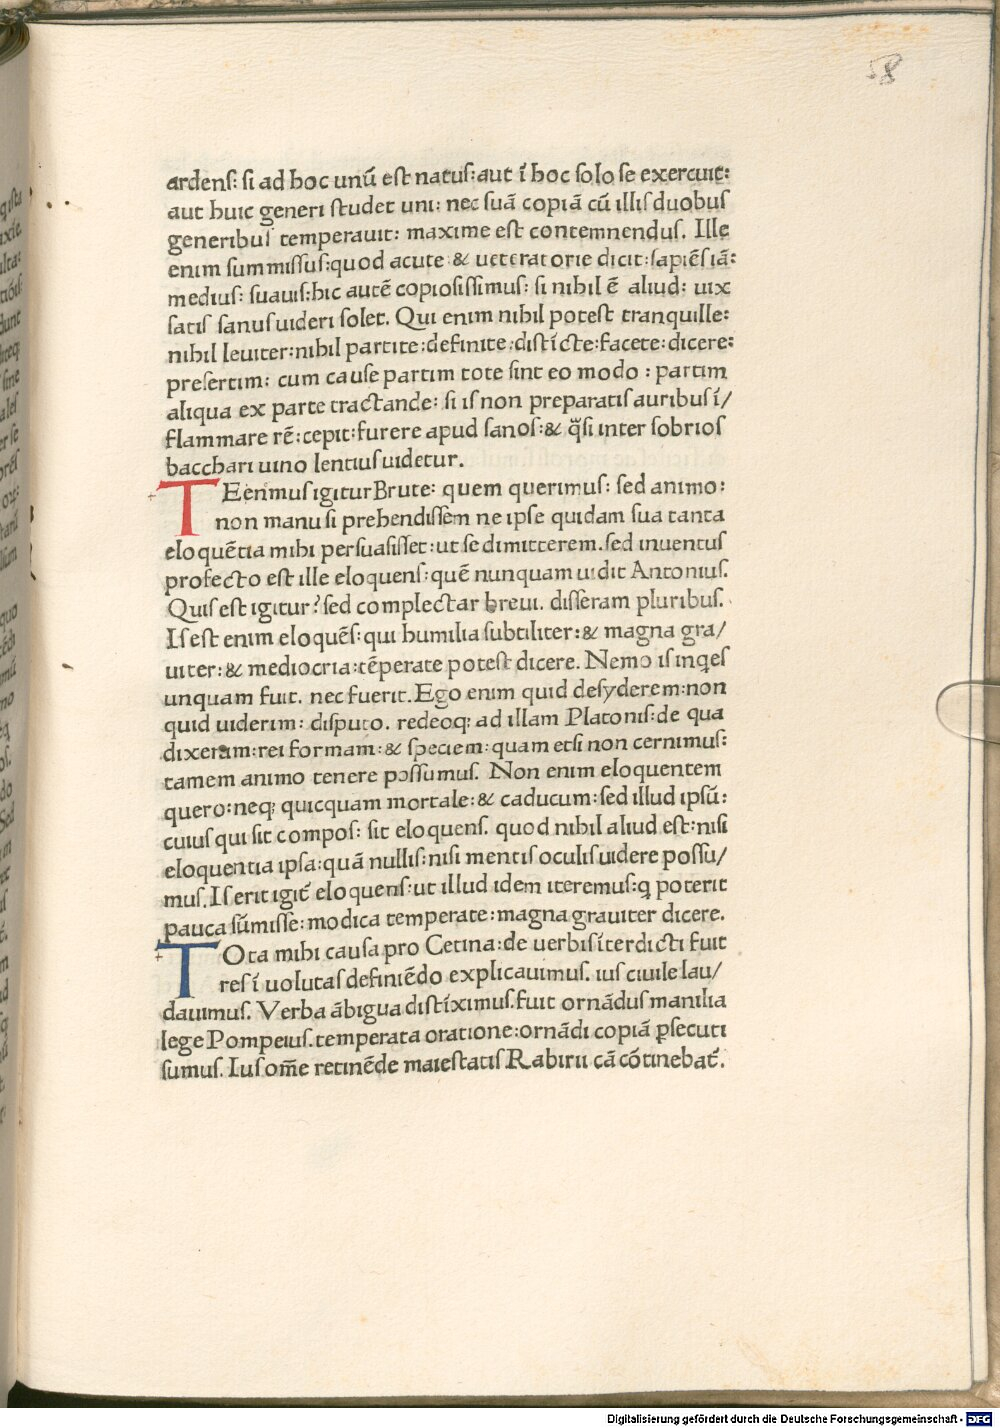 58
ardens: si ad hoc unũ est natus: aut ĩ hoc solo se exercuit:
aut huic generi studet uni: nec suã copiã cũ illis duobus
generibus temperauit: maxime est contemnendus. Ille
enim summissus: quod acute & ueteratorie dicit: sapiẽs iã:
medius: suauis: hic autẽ copiosissimus: si nihil ẽ aliud: uix
satis sanus uideri solet. Qui enim nihil potest tranquille:
nihil leuiter: nihil partite: definite: distĩcte: facete: dicere:
presertim: cum cause partim tote sint eo modo: partim
aliqua ex parte tractande: si is non preparatis auribus ĩ/
flammare rẽ: cepit: furere apud sanos: & q̃si inter sobrios
bacchari uino lentius uidetur.
TEenmus igitur Brute: quem querimus: sed animo:
non manu si prehendissem ne ipse quidam sua tanta
eloquẽtia mihi persuasisset: ut se dimitterem. sed inuentus
profecto est ille eloquens: quẽ nunquam uidit Antonius.
Quis est igitur? sed complectar breui. disseram pluribus.
Is est enim eloquẽs: qui humilia subtiliter: & magna gra/
uiter: & mediocria: tẽperate potest dicere. Nemo is inq̃es
unquam fuit. nec fuerit. Ego enim quid desyderem: non
quid uiderim: disputo. redeoq; ad illam Platonis: de qua
dixeram: rei formam: & speciem: quam etsi non cernimus:
tamem animo tenere possumus. Non enim eloquentem
quero: neq; quicquam mortale: & caducum: sed illud ipsũ:
cuius qui sit compos: sit eloquens. quod nihil aliud est: nisi
eloquentia ipsa: quã nullis: nisi mentis oculis uidere possu/
mus. Is erit igit̃ eloquens: ut illud idem iteremus: q̃ poterit
pauca sũmisse: modica temperate: magna grauiter dicere.
TOta mihi causa pro Cetina: de uerbis ĩterdicti fuit
res ĩuolutas definiẽdo explicauimus. ius ciuile lau/
dauimus. Verba ãbigua distĩximus. fuit ornãdus manilia
lege Pompeius. temperata oratione: ornãdi copiã ꝑsecuti
sumus. Ius om̃e retinẽde maiestatis Rabirii cã cõtinebat̃.
Digitalisierung gefördert durch die Deutsche Forschungsgemeinschaft - DFG